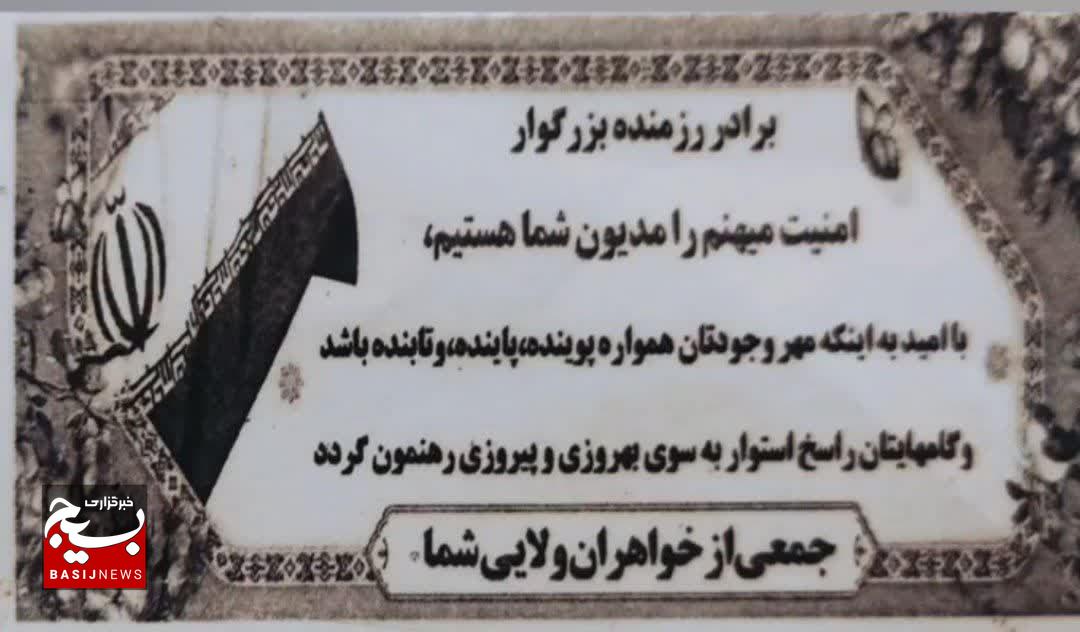 برادر رزمنده بزرگوار
امنیت میهنم را مدیون شما هستیم،
با امید به اینکه مهر وجودتان همواره پوینده،پاینده،وتابنده باشد
و گامهایتان راسخ استوار به سوی بهروزی و پیروزی رهنمون گردد
جمعی از خواهران ولایی شما
خبرگزاری
بسیج
BASIJNEWS